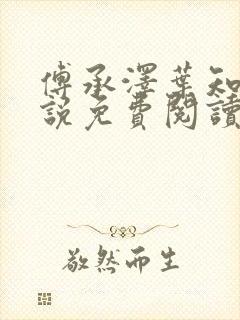 傅承澤葉知
說免費閱讀
敬然而生